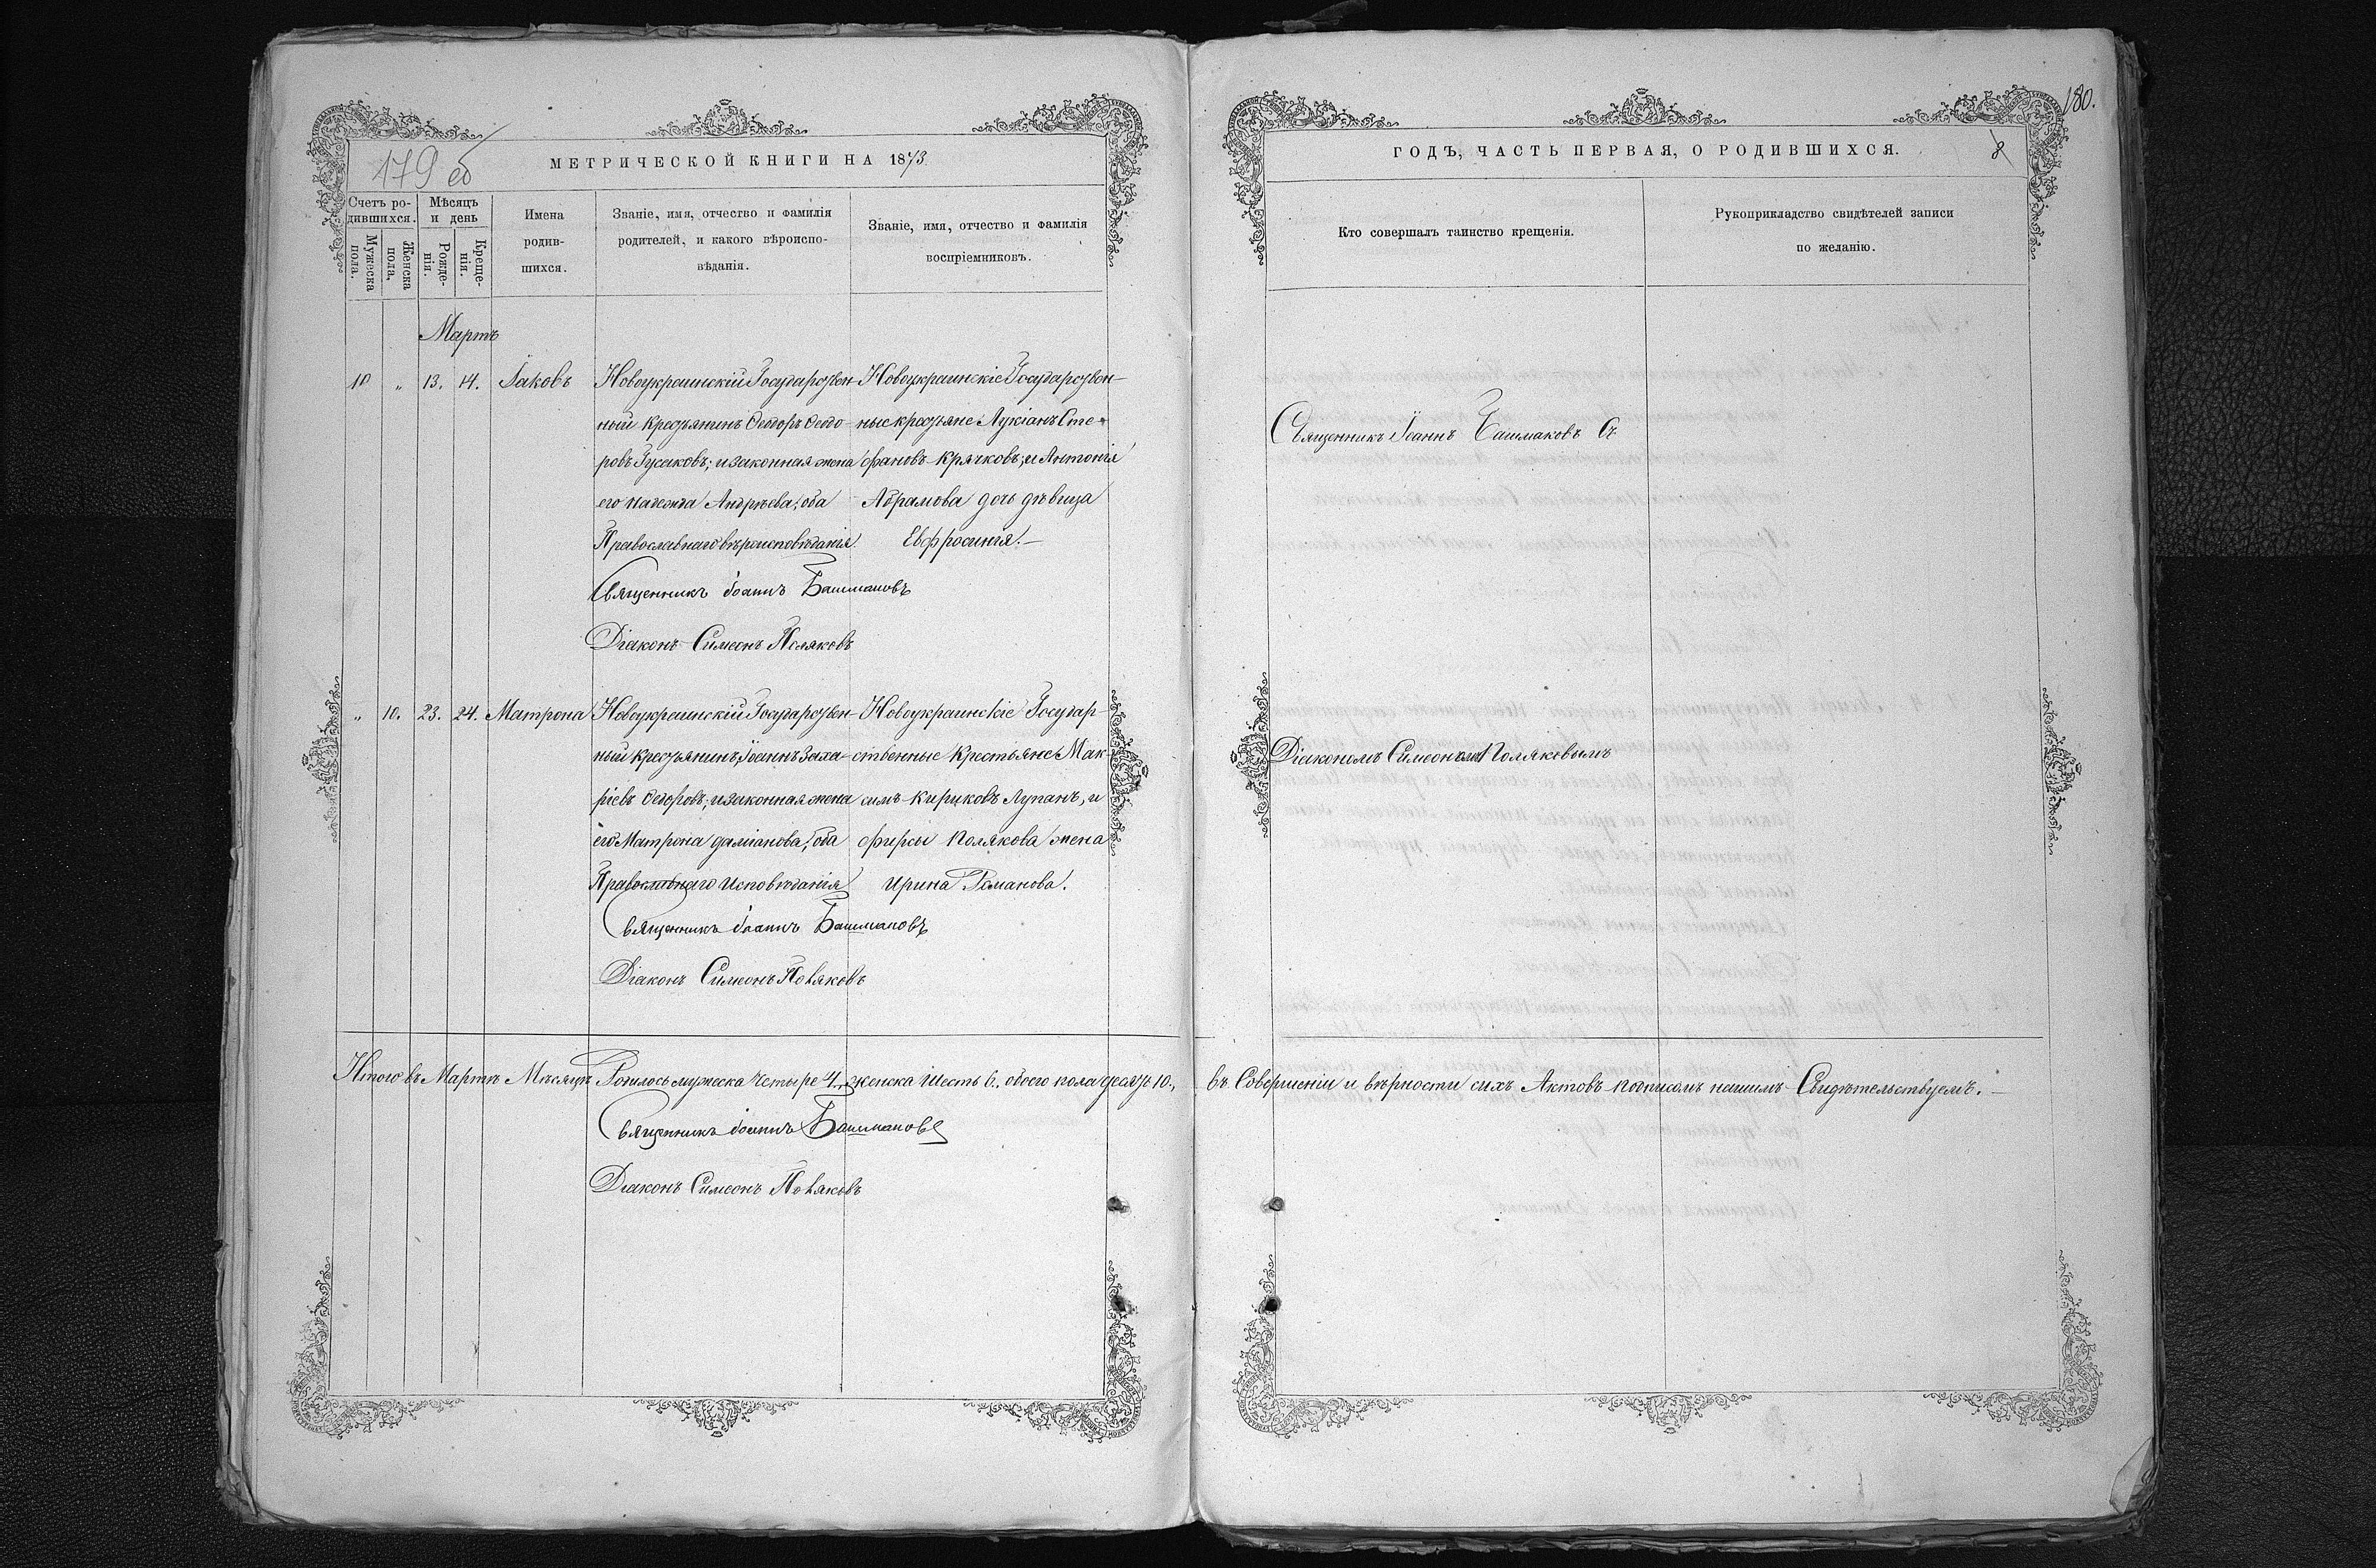 179 об
МЕТРИЧЕСКОЙ КНИГИ НА 1873
Счетъ ро-
дившихся.
Мужеска
пола.
Женска
пола.
Мѣсяцъ
и день
Рожде-
нія.
Креще-
нія.
Имена
родив-
шихся.
Званіе, имя, отчество и фамилія
родителей, и какого вѣроиспо-
вѣданія.
Званіе, имя, отчество и фамилія
воспріемниковъ.
Мартъ
10 „ 13. 14. Іаковъ
Новоукраинскій Государствен-
ный крестьянинъ Ѳедоръ Ѳедо-
ровъ Гусаковъ; и законная жена
его Надежда Андрѣева, оба
Православнаго вѣроисповѣданія.
Новоукраинскіе Государствен-
ные крестьяне Лукіанъ Сте-
фановъ Крячковъ, и Антонія
Абрамова дочь дѣвица
Евфросинія.—
Священникъ Іоаннъ Башмаковъ
Діаконъ Симеонъ Поляковъ
„ 10. 23. 24. Матрона
Новоукраинскій Государствен-
ный крестьянинъ Іоаннъ Заха-
ріевъ Ѳедоровъ; и законная жена
его Матрона Даміанова, оба
Православнаго Исповѣданія
Новоукраинскіе Государ-
ственные Крестьяне Мак
симъ Кириковъ Лупанъ, и
Фирсы Полякова жена
Ирина Романова.
Священникъ Іоаннъ Башмаковъ
Діаконъ Симеонъ Поляковъ
Итого въ Мартѣ Мѣсяцѣ Родилось мужеска Четыре 4. женска Шесть 6. обоего пола десять 10,
Священникъ Іоаннъ Башмаковъ
Діаконъ Симеонъ Поляковъ
180.
8
ГОДЪ, ЧАСТЬ ПЕРВАЯ, О РОДИВШИХСЯ.
Кто совершалъ таинство крещенія.
Рукоприкладство свидѣтелей записи
по желанію.
Священникъ Іоаннъ Башмаковъ
Діакономъ Симеономъ Поляковымъ
въ Совершеніи и вѣрности сихъ Актовъ подписомъ нашимъ Свидѣтельствуемъ.—